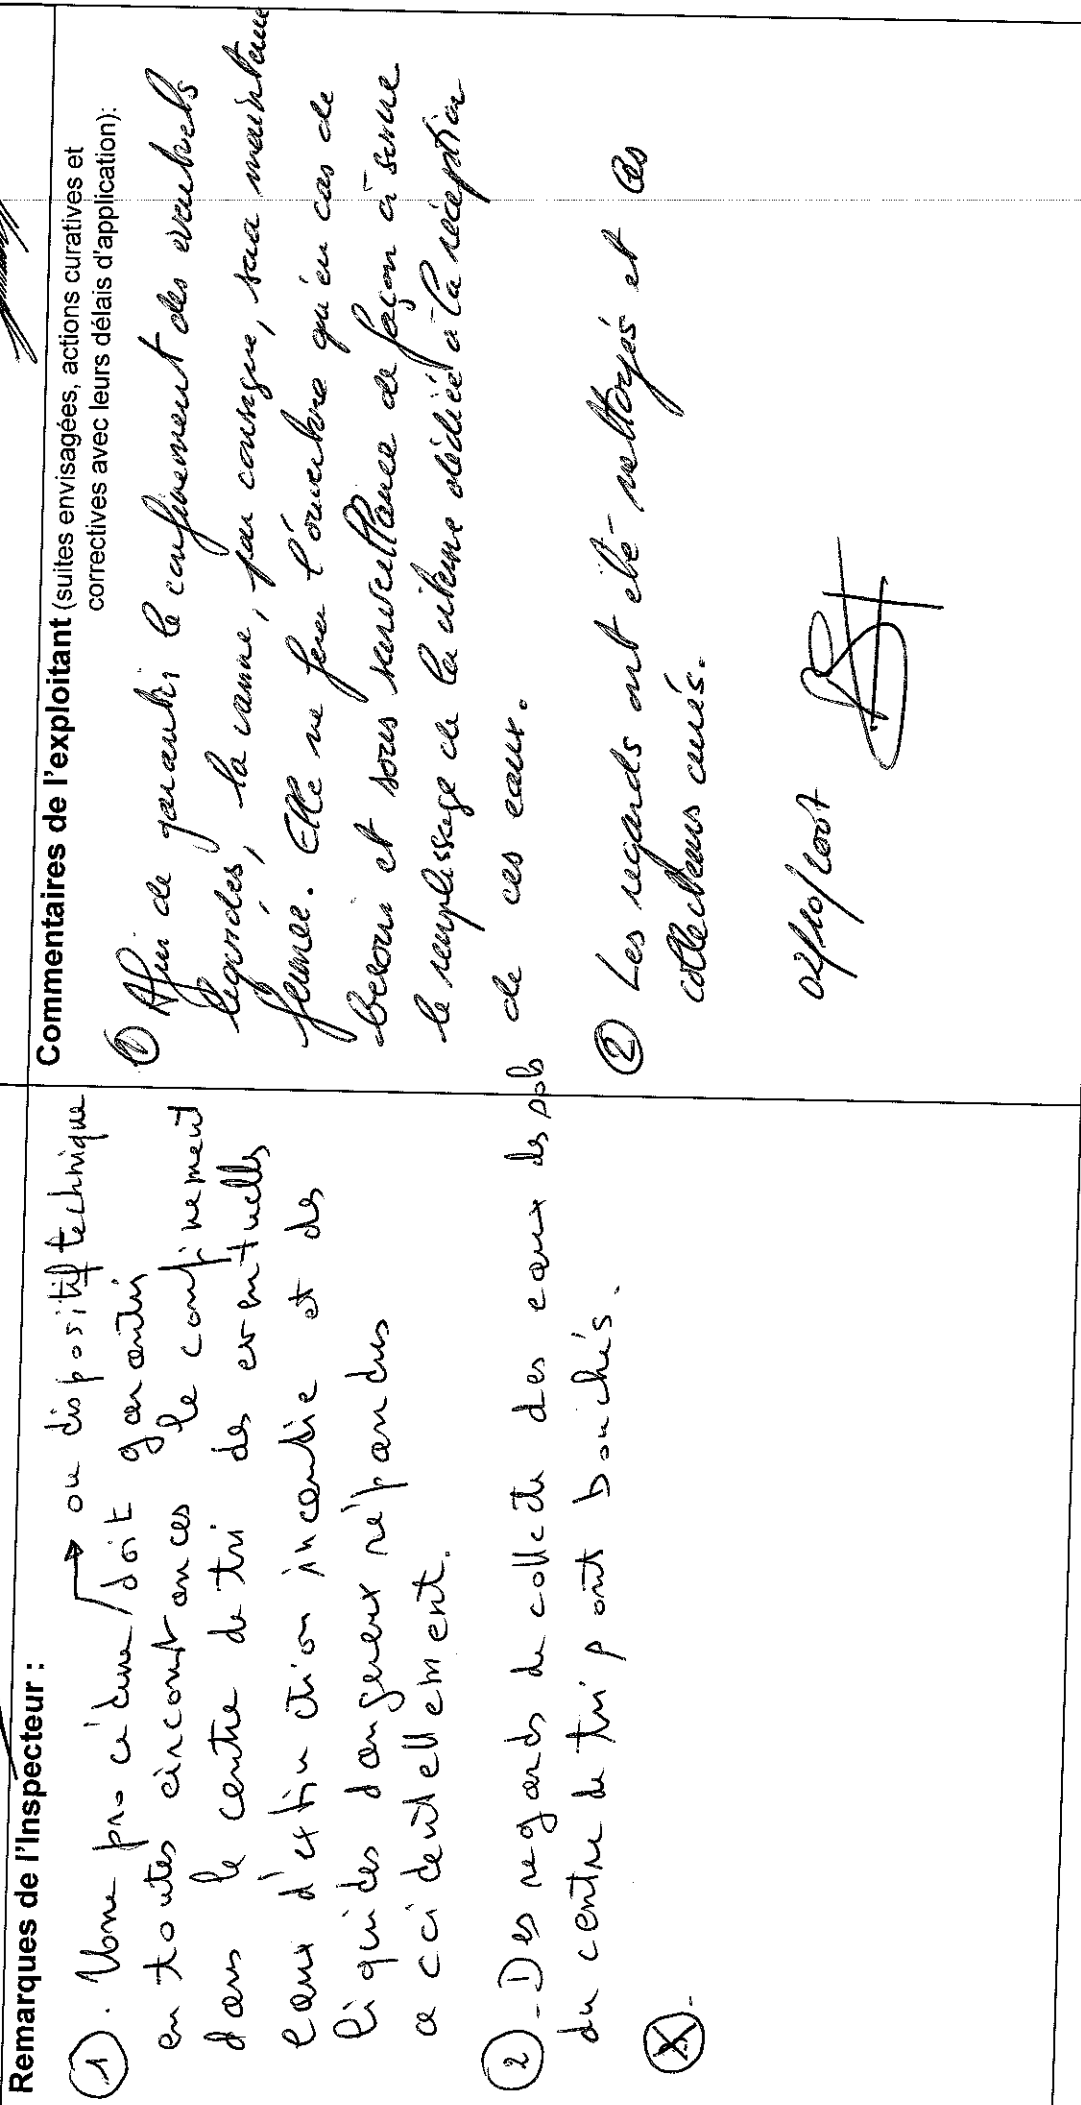 Remarques de l'Inspecteur :
① . Une procédure / doit garantir
→ ou dispositif technique
en toutes circonstances le confinement
dans le centre de tri des eventuelles
eaux d'extinction incendie et des
liquides dangereux répandus
accidentellement.
② - Des regards de collecte des eaux des sols
du centre de tri sont bouchés.
Commentaires de l'exploitant (suites envisagées, actions curatives et
correctives avec leurs délais d'application):
① Afin de garantir le confinement des éventuels
liquides, la vanne, par consigne, sera maintenue
fermée. Elle ne fera l'ouverture qu'en cas de
besoin et sous surveillance de façon à suivre
le remplissage de la citerne dédiée à la réception
de ces eaux.
② Les regards ont été nettoyés et les
collecteurs curés.
02/10/2007